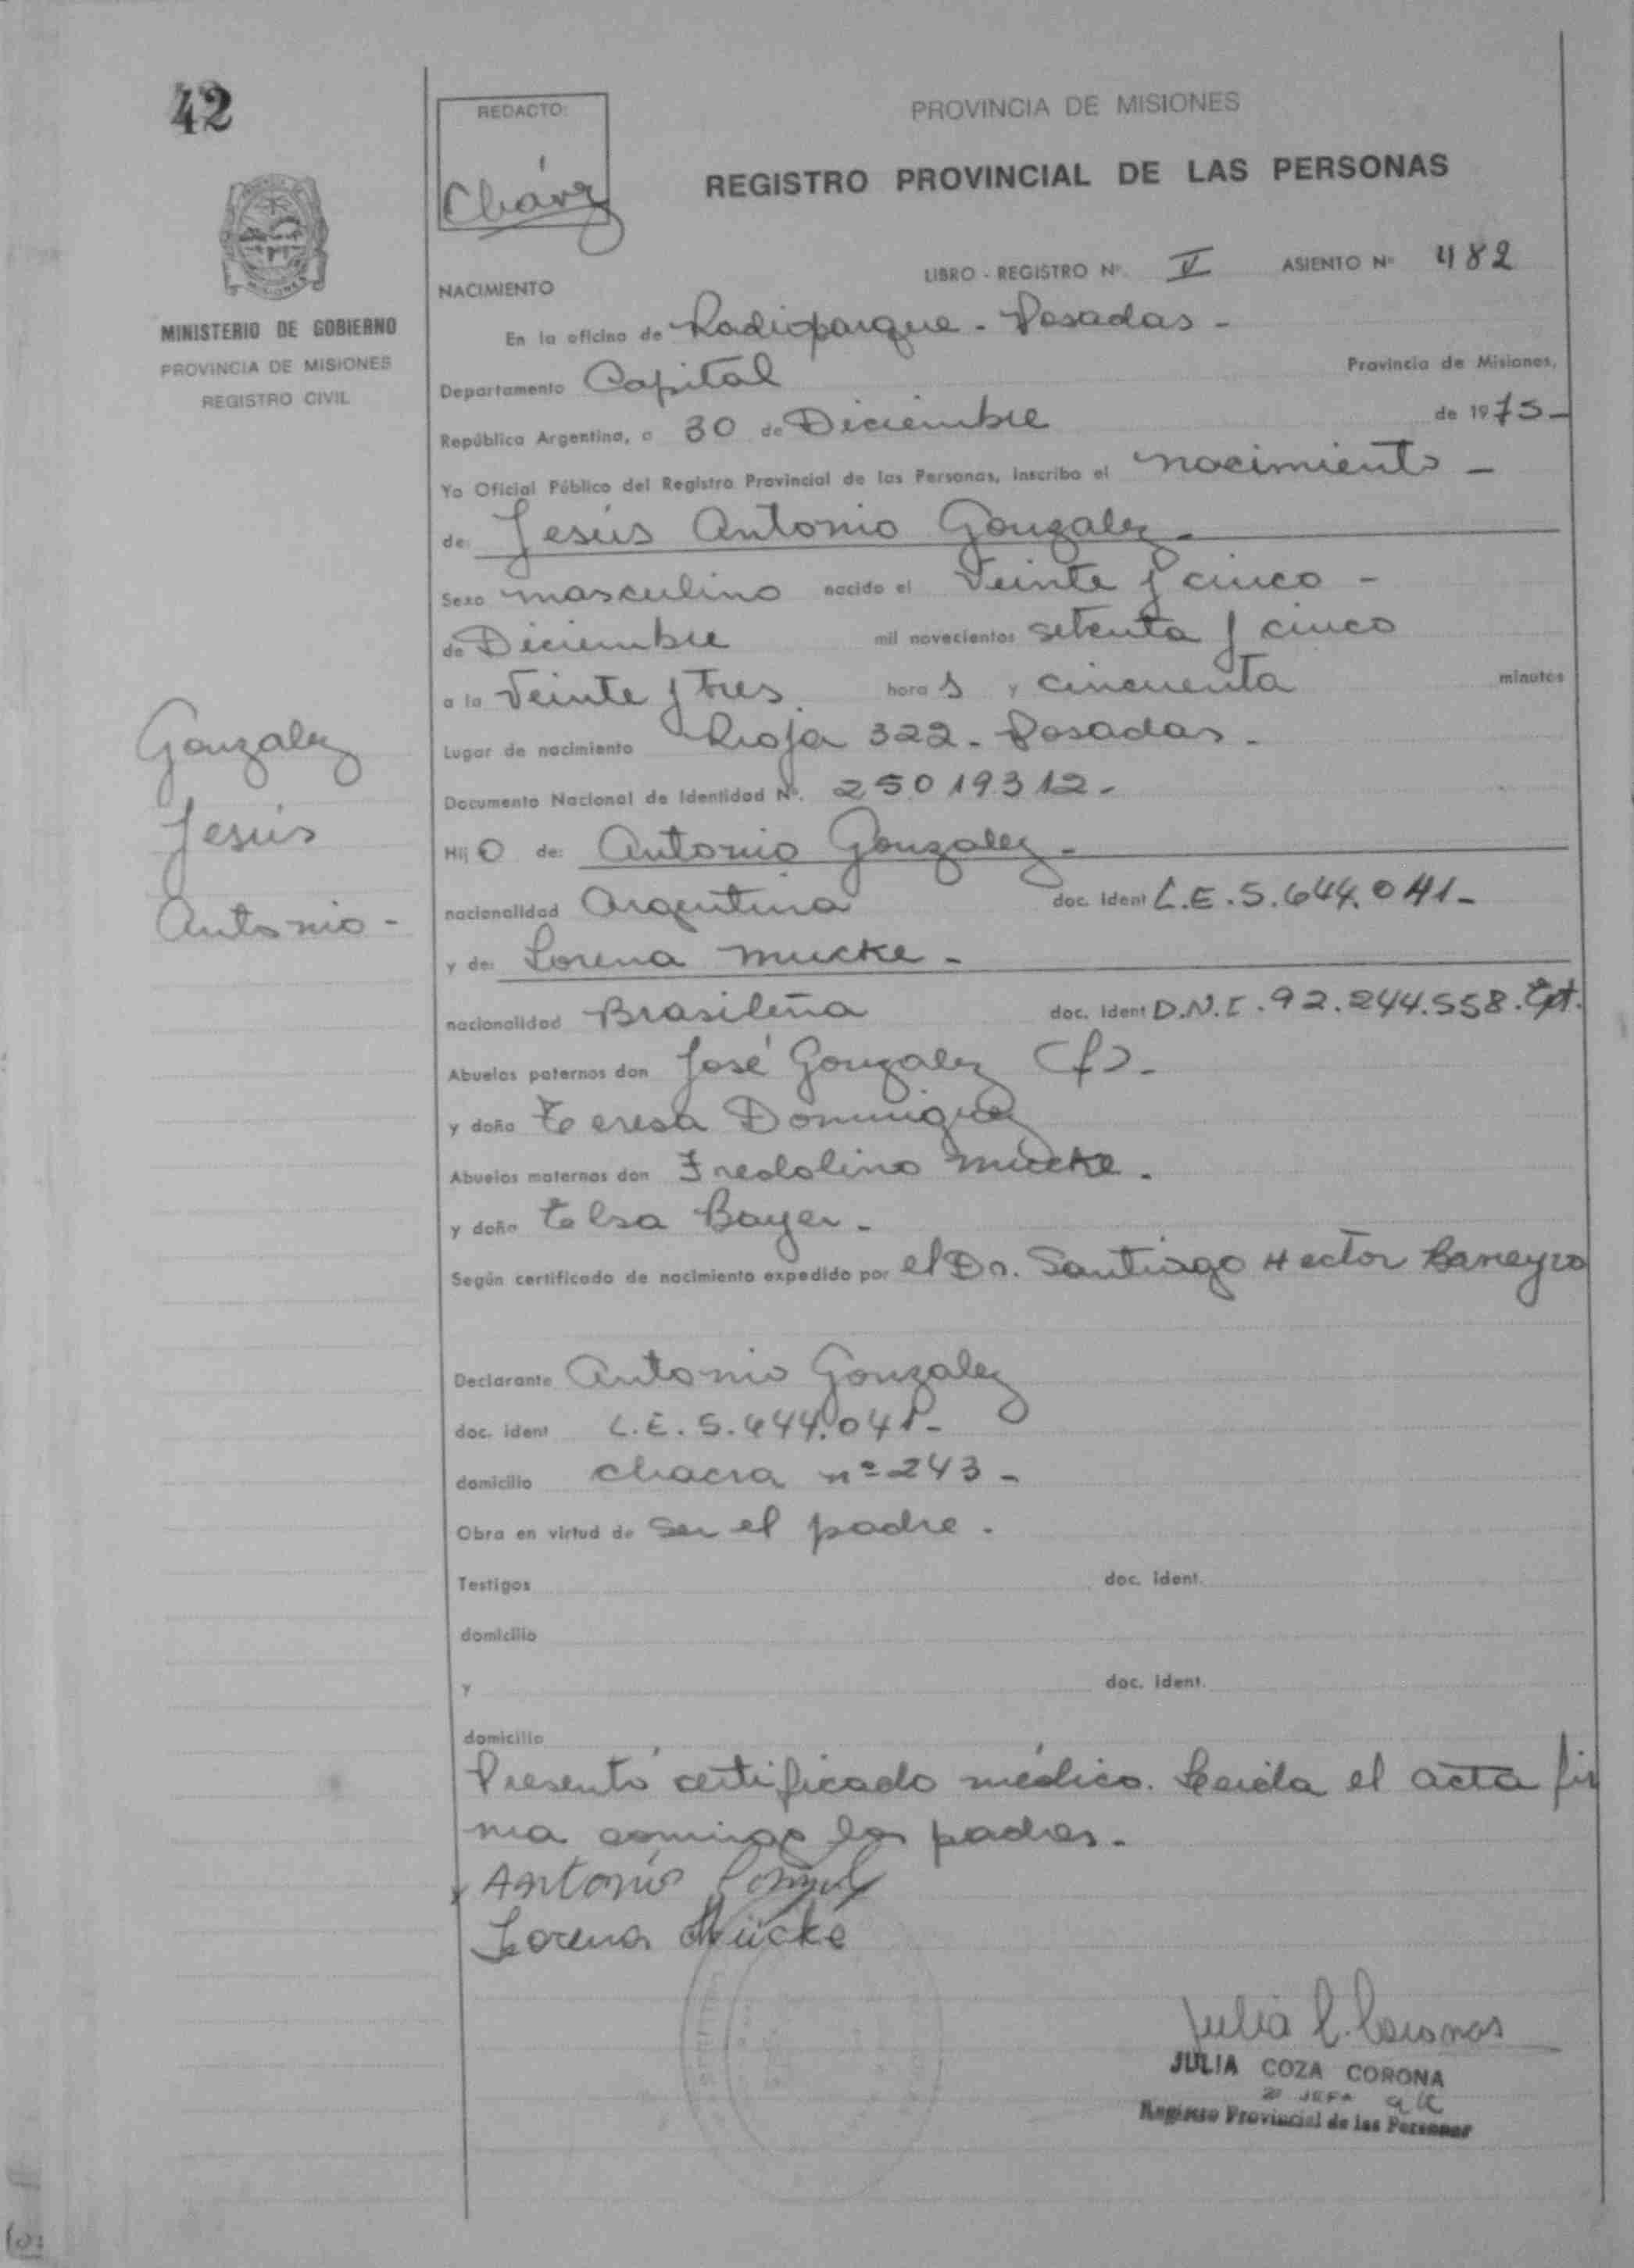 42
REDACTO:
Chávez
PROVINCIA DE MISIONES
REGISTRO PROVINCIAL DE LAS PERSONAS
MINISTERIO DE GOBIERNO
PROVINCIA DE MISIONES
REGISTRO CIVIL
NACIMIENTO LIBRO - REGISTRO Nº V ASIENTO Nº 482
En la oficina de Radioparque - Posadas -
Departamento Capital Provincia de Misiones,
República Argentina, a 30 de Diciembre de 1975 -
Yo Oficial Público del Registro Provincial de las Personas, inscribo el nacimiento -
de: Jesús Antonio Gonzalez -
Sexo masculino nacido el Veinte y cinco -
de Diciembre mil novecientos setenta y cinco
a la Veinte y tres hora s y cincuenta minutos
Lugar de nacimiento Rioja 322 - Posadas -
Documento Nacional de Identidad Nº. 25019312 -
Hij o de: Antonio Gonzalez -
nacionalidad Argentina doc. ident L.E. 5.644.041 -
y de: Lorena Mucke -
nacionalidad Brasileña doc. ident D.N.I. 92.244.558.
Abuelos paternos don José Gonzalez (f) -
y doña Teresa Dominguez
Abuelos maternos don Fredolino Mucke -
y doña Elsa Bayer -
Según certificado de nacimiento expedido por el Dr. Santiago Hector Barreyro
Declarante Antonio Gonzalez
doc. ident L.E. 5.644.041 -
domicilio chacra nº 243 -
Obra en virtud de ser el padre.
Testigos doc. ident.
domicilio
y doc. ident.
domicilio
Presentó certificado médico. Leída el acta fir
ma conmigo los padres -
Antonio
Lorena Mücke
Gonzalez
Jesús
Antonio -
JULIA COZA CORONA
JEFA
Registro Provincial de las Personas